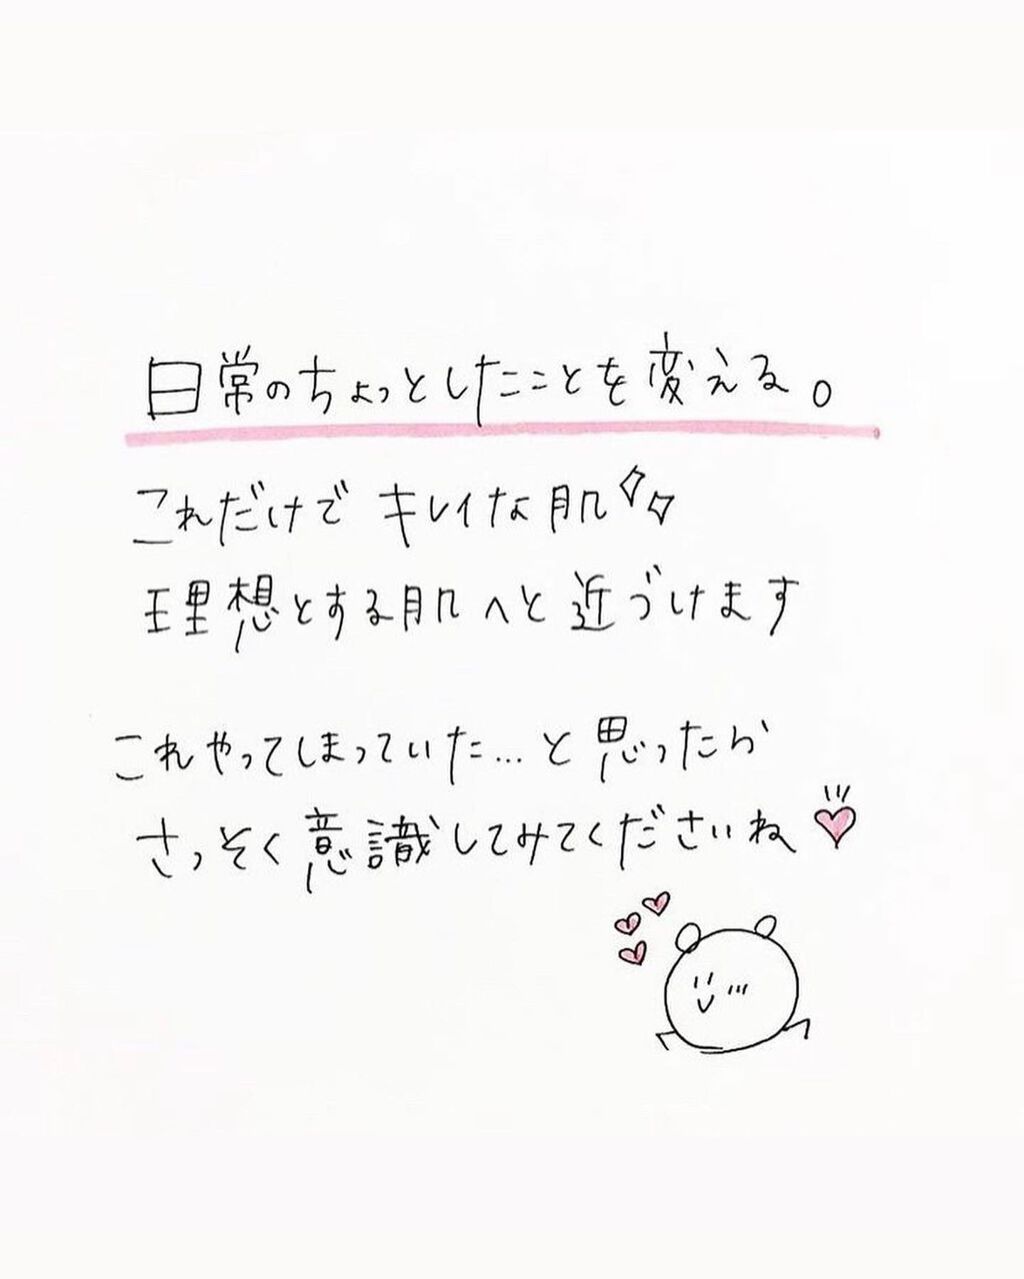 日常のちょっとしたことを変える。
これだけでキレイな肌
理想とする肌へと近づけます
これやってしまっていた...と思ったら
さっそく意識してみてくださいね